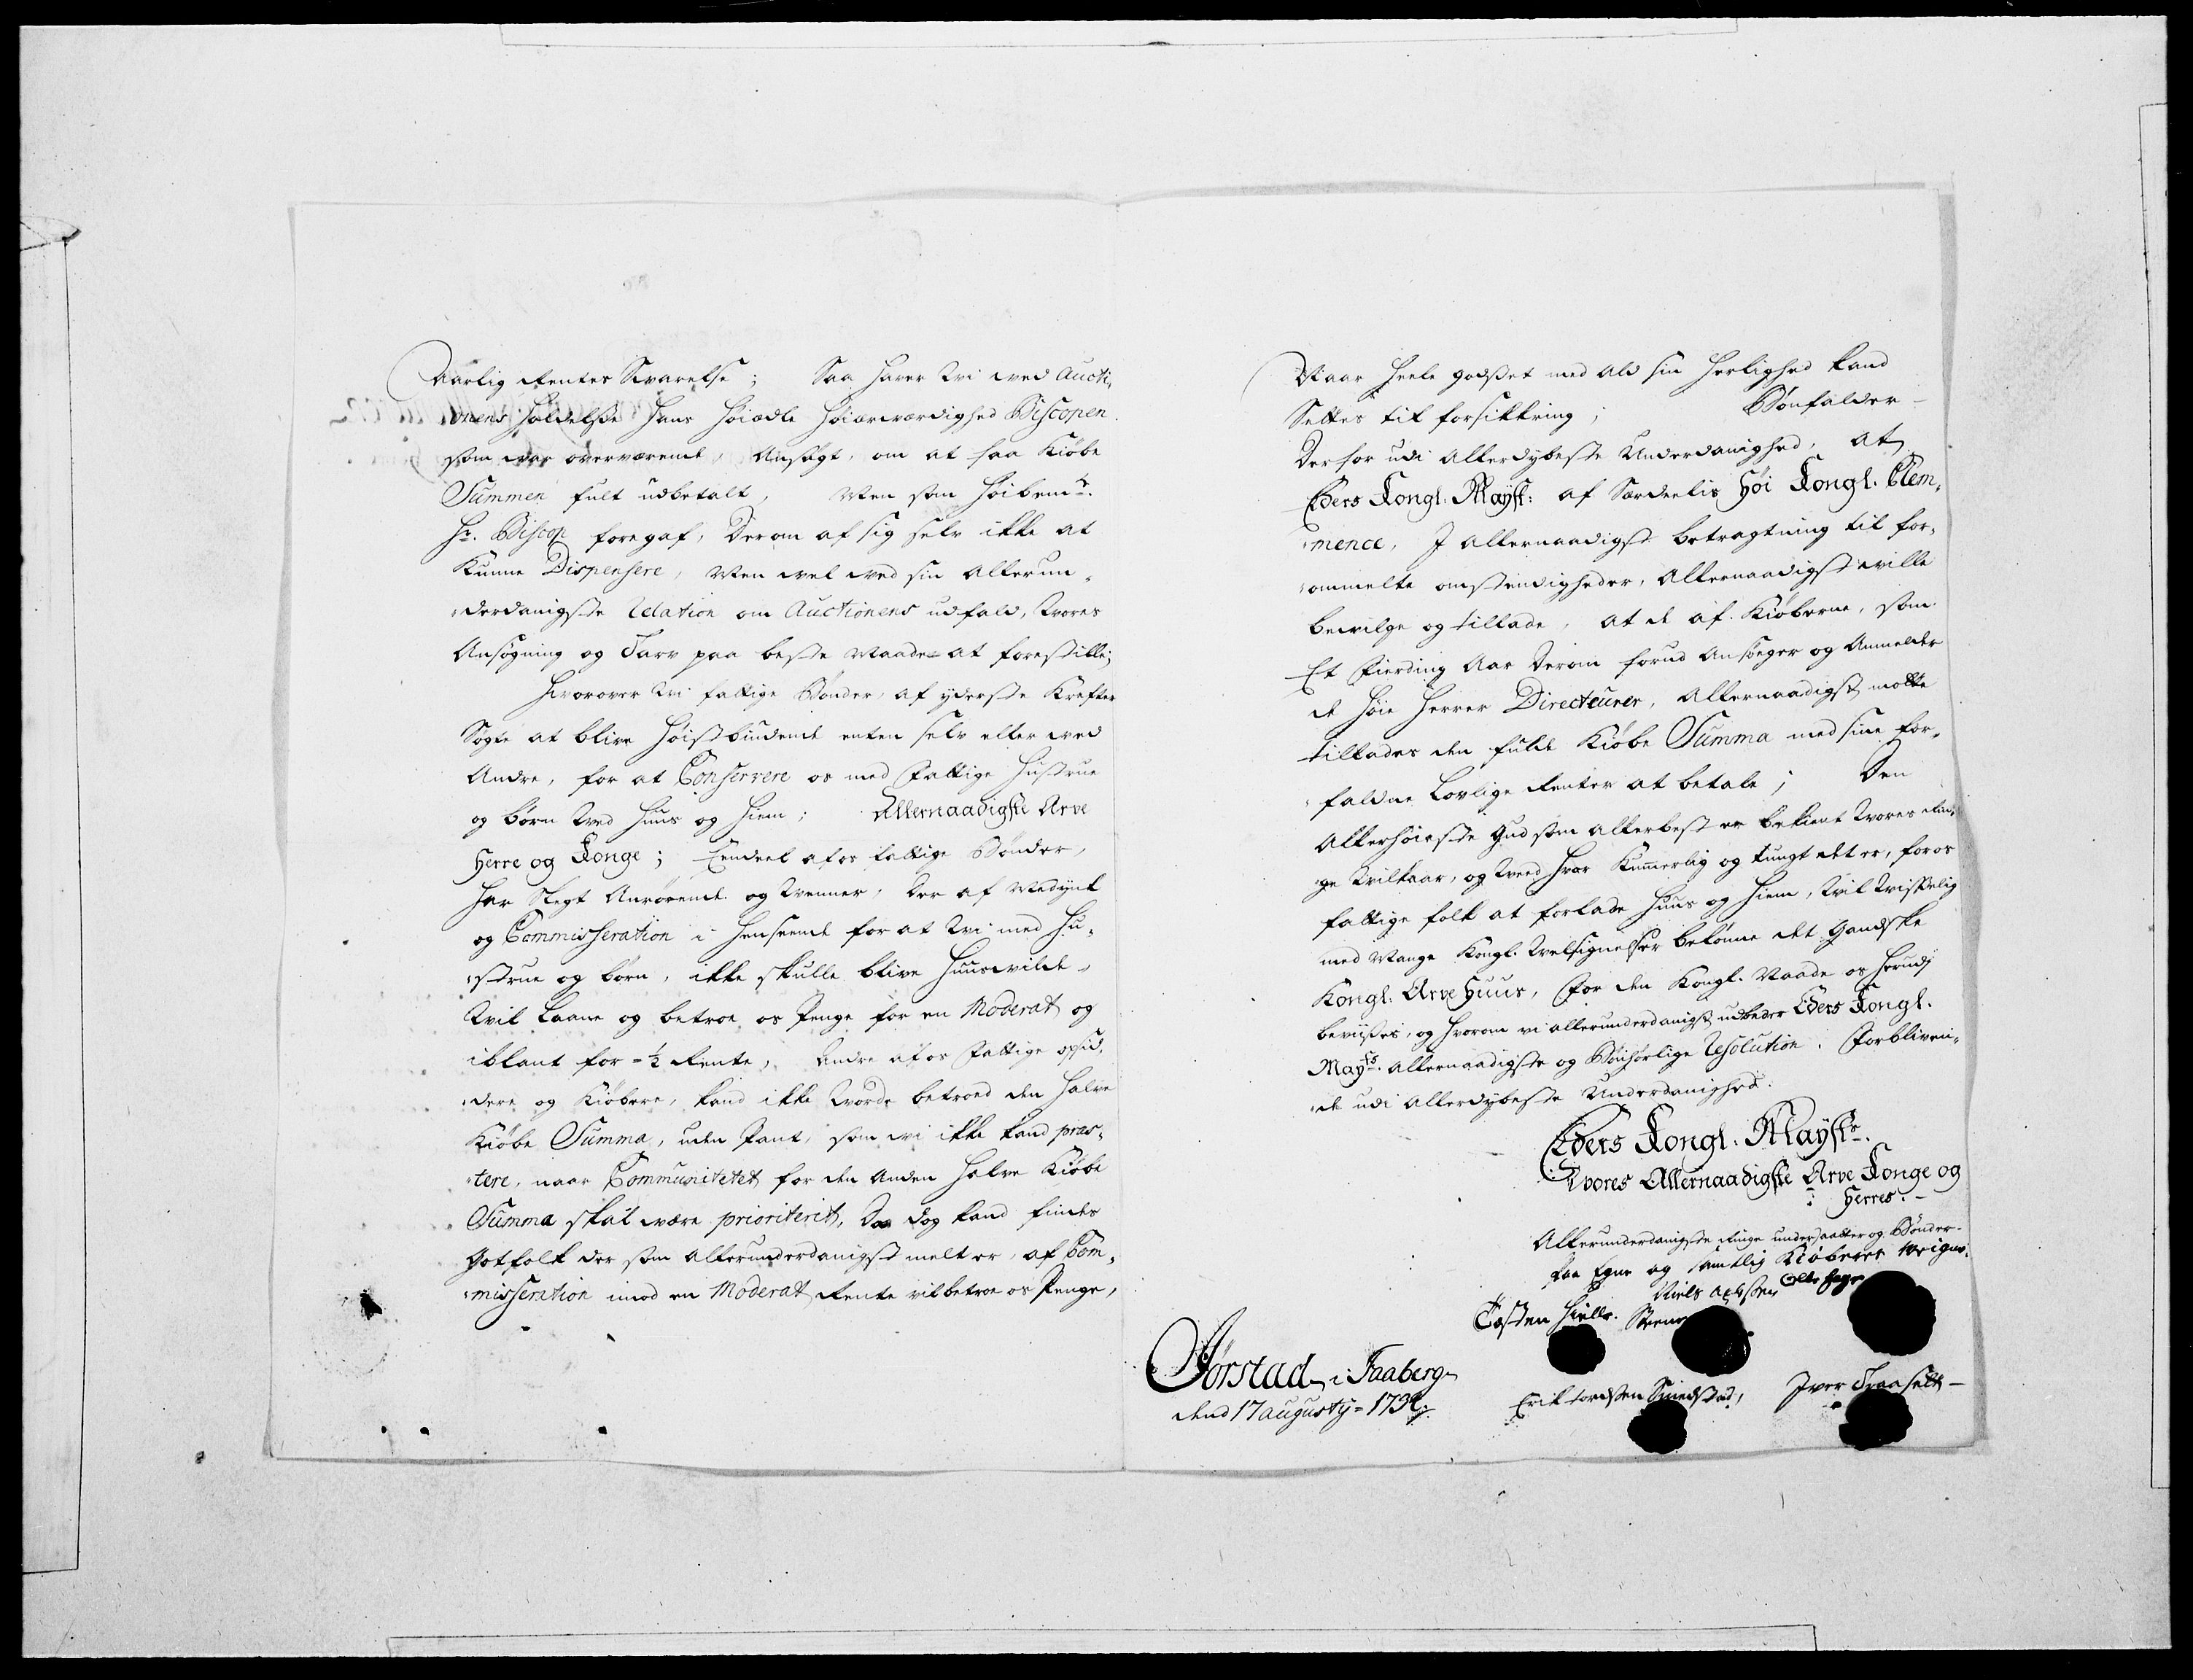 aarlig Renters Svarelse; Saa haver Wi wed Aucti-
onens holdelse Hans Høiædle Høiærværdighed Biscopen
som war overværende, Ansøgt, om at faa Kiøbe
Summen fult udbetalt, Men som Høibemte.
Hr. Biscop foregaf, derom af sig selv ikke at
Kunne Dispensere, Men wel wed sin Allerun-
derdanigste Relation om Auctionens udfald, Wores
Ansøgning og Tarv paa beste Maade at forestille;
Hvorover Wi fattige Bønder, af yderste Kreffter
Søgte at blive Høistbindende enten selv eller wed
Andre, for at Conservere os med fattige Hustrue
og børn Wed Huus og Hiem; Allernaadigste Arve
Herre og Konge; Eendeel af os fattige Bønder,
har Slegt Anrørende og Wenner, der af Medynk
og Commisseration i henseende for at Wi med Hu-
strue og børn, ikke skulle blive Huusvilde
Wil Laane og betroe os Penge for en Moderat og
iblant for ½ Rente, Andre af os fattige opsid-
dere og Kiøbere, kand ikke Worde betroed den halve
Kiøbe Summa, uden Pant, som wi ikke kand præs-
tere, naar Communitetet for den Anden halve Kiøbe
Summa skal være prioriterit, Da dog kand findes
Gotfolk der som allerunderdanigst melt er, af Com-
misseration imod en Moderat Rente vil betroe os Penge,
Naar Heele godset med Ald sin Herlighed kand
Settes til forsikkring; Bønfalder
derfor udi Allerdybeste Underdanighed, at
Eders Kongl: Mayst: af Særdeelis Høi Kongl. Clem-
mence, I allernaadigst betragtning til for-
ommelte omstendigheder, Allernaadigst wille
bewilge og tillade, at de af Kiøberne, som
Et Fierding Aar derom forud Ansøger og Anmelder
de Høie Herrer Directeurer, Allernaadigst motte
tillades den fulde Kiøbe Summa med sine for-
faldne Lovlige Renter at betale; Den
Allerhøieste Gud som allerbest er bekient Wores Rin-
ge Wilkaar, og Weed hvor Kummerlig og tungt det er, for os
fattige folk at forlade Huus og Hiem, Wil Wisselig
med Mange Kongl. Welsignelser belønne det Gandske
Kongl: Arve Huus, For den Kongl. Naade os herudj
bevises, og hvorom vi allerunderdanigst udbeder Eders Kongl.
Maysts. allernaadigste og Bønhørlige Resolution. Forbliven-
de udi Allerdybeste Underdanighed.
Eders Kongl. Maysts.
Wores Allernaadigste Arve Konge og
Herres.
Allerunderdanigste Ringe undersaatter og Bønder
paa Egne og samtlig Kiøberes weigne
Niels Olle
Tosten Hielle.
Jørstad i Faaberg
dend 17 augusty 1732.
Erik Smedstad, Iver